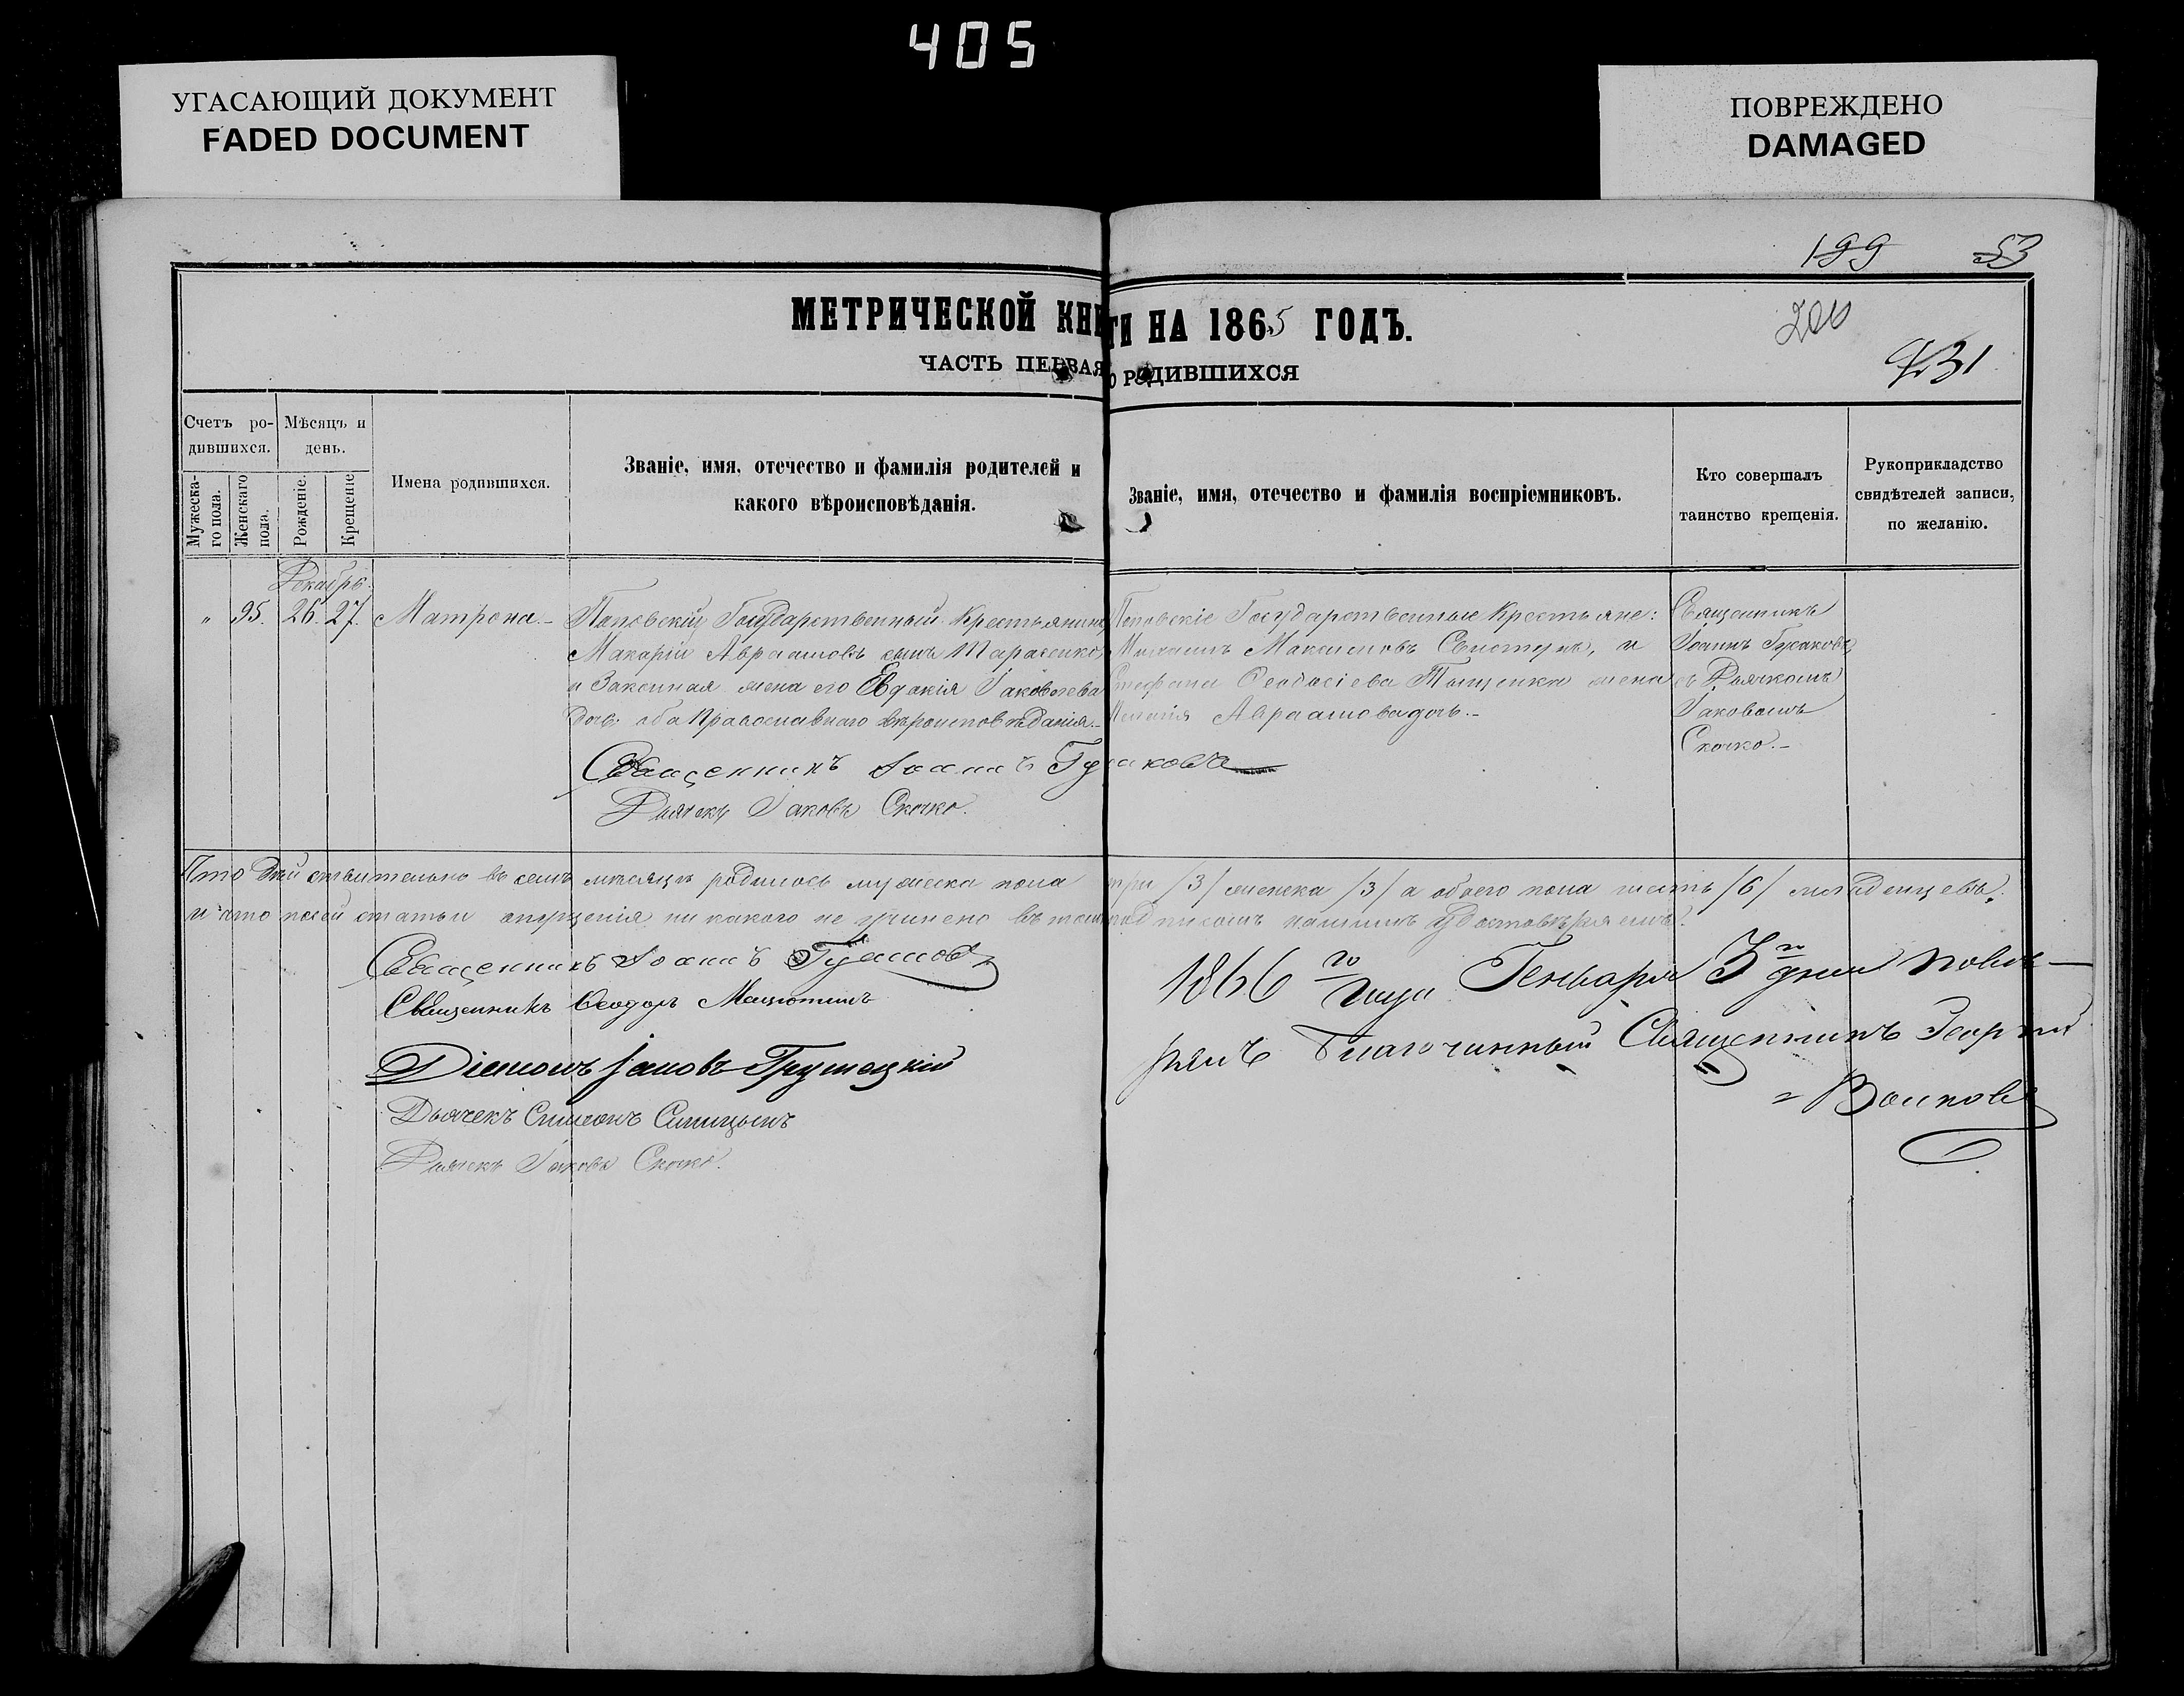 405
УГАСАЮЩИЙ ДОКУМЕНТ
FADED DOCUMENT
ПОВРЕЖДЕНО
DAMAGED
199 53
МЕТРИЧЕСКОЙ КНИГИ НА 1865 ГОДЪ.
200
431
ЧАСТЬ ПЕРВАЯ О РОДИВШИХСЯ
Счетъ ро-
дившихся.
Мѣсяцъ и
день.
Мужеска-
го пола.
Женскаго
пола.
Рожденіе.
Крещеніе
Имена родившихся.
Званіе, имя, отечество и фамилія родителей и
какого вѣроисповѣданія.
Званіе, имя, отечество и фамилія воспріемниковъ.
Кто совершалъ
таинство крещенія.
Рукоприкладство
свидѣтелей записи,
по желанію.
Декабрь.
" 95. 26. 27. Матрона.-
Поповскій Государственный Крестьянинъ
Макарій Авраамовъ сынъ Тарасенко
и Законная жена его Евдокія Іаковлева
дочь. оба Православнаго вѣроисповѣданія.-
Поповскіе Государственные Крестьяне:
Максимовъ и
Стефана Ѳеодосіева Тыщенка жена
Авраамова дочь.-
Священникъ
Іоаннъ
съ Дьячкомъ
Іаковомъ
Скочко.-
Священникъ Іоаннъ
Дьячекъ Іаковъ Скочко.
Что дѣйствительно въ семъ мѣсяцѣ родилось мужеска пола три /3/ женска /3/ а обоего пола шесть /6/ младенцевъ.
и что по сей статьи опущенія ни какого не учинено въ томъ подписомъ нашимъ удостовѣряемъ.
Священникъ Іоаннъ
Священникъ Ѳеодоръ
Діаконъ Іаковъ
Дьячекъ Симеонъ
Дьячекъ Іаковъ Скочко.
1866 го года Генваря 3 го дня повѣ-
рялъ Благочинный Священникъ Георгій
Волковъ